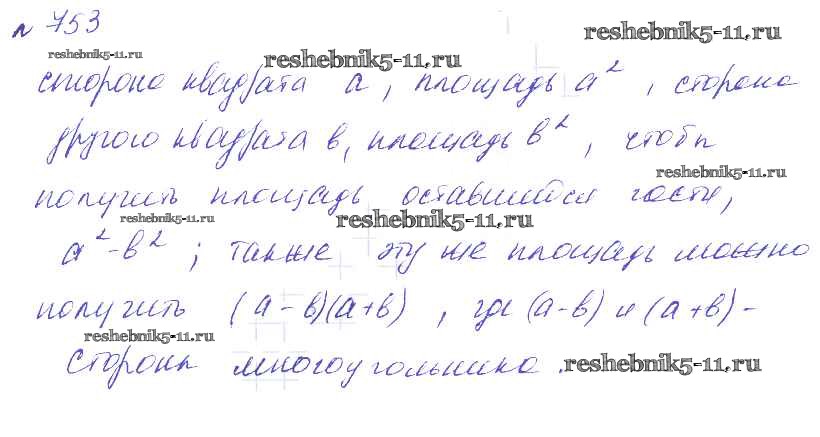 № 753
reshebnik5-11.ru
reshebnik5-11.ru
reshebnik5-11.ru
сторона квадрата а, площадь а², сторона
другого квадрата в, площадь в², чтобы
reshebnik5-11.ru
получить площадь оставшейся части,
reshebnik5-11.ru
reshebnik5-11.ru
а² - в²; также эту же площадь можно
получить (а - в)(а + в), где (а - в) и (а + в) -
reshebnik5-11.ru
стороны многоугольника.
reshebnik5-11.ru